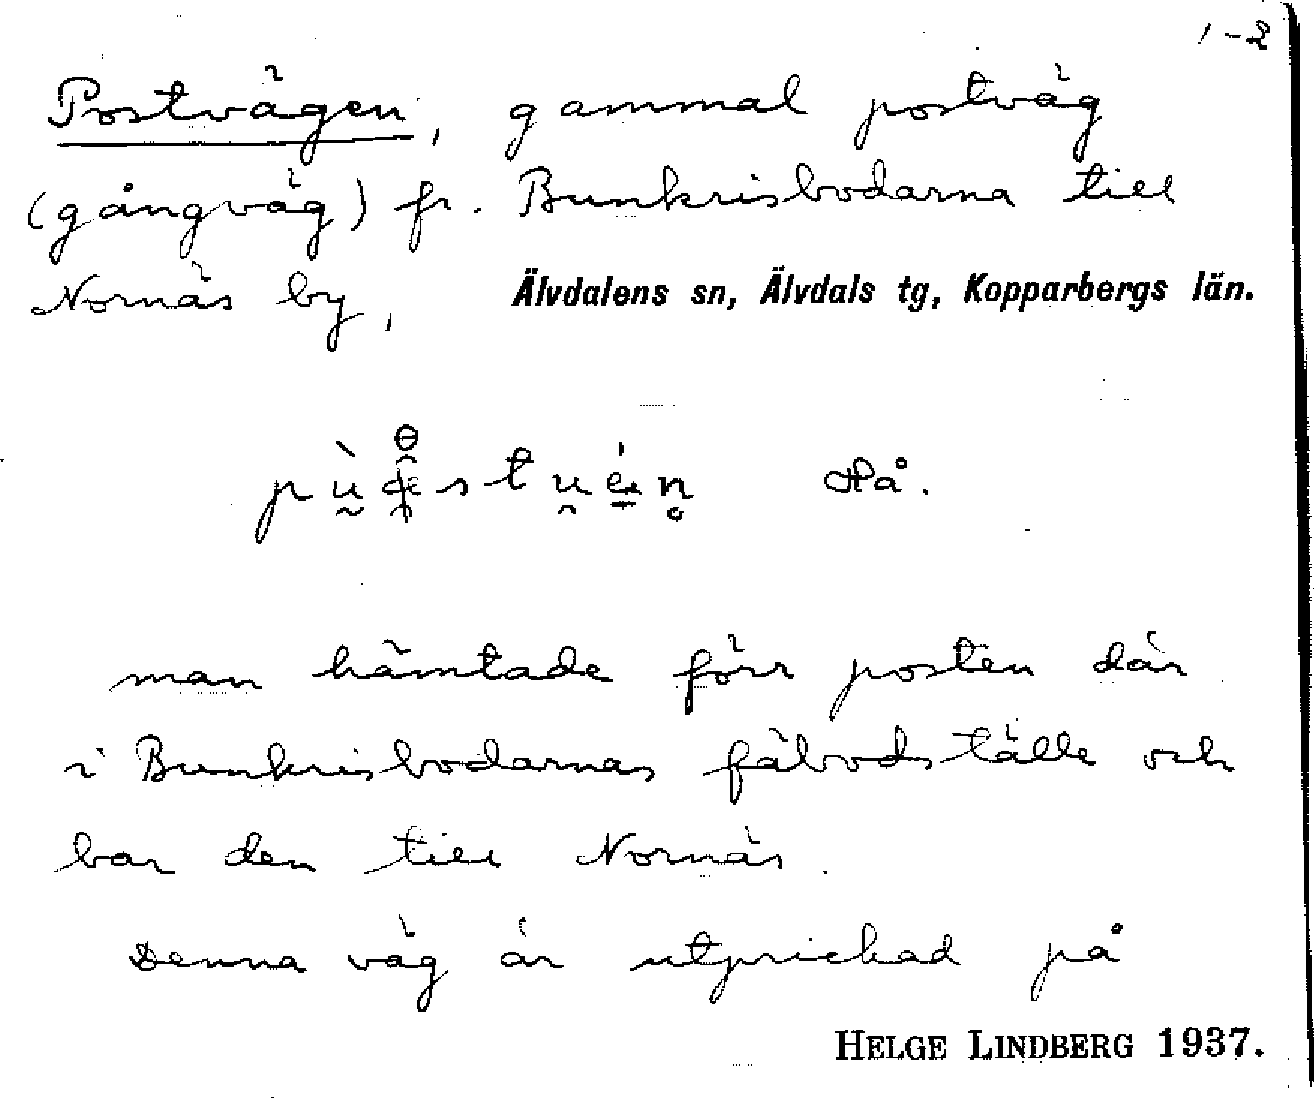 1-2
Postvägen, gammal postväg
(gångväg) fr. Bunkrisbodarna till
Nornäs by, Älvdalens sn, Älvdals tg, Kopparbergs län.
Hå.
man hämtade förr posten där
i Bunkrisbodarnas fäbodställe och
bar den till Nornäs.
Denna väg är utprickad på
HELGE LINDBERG 1937.